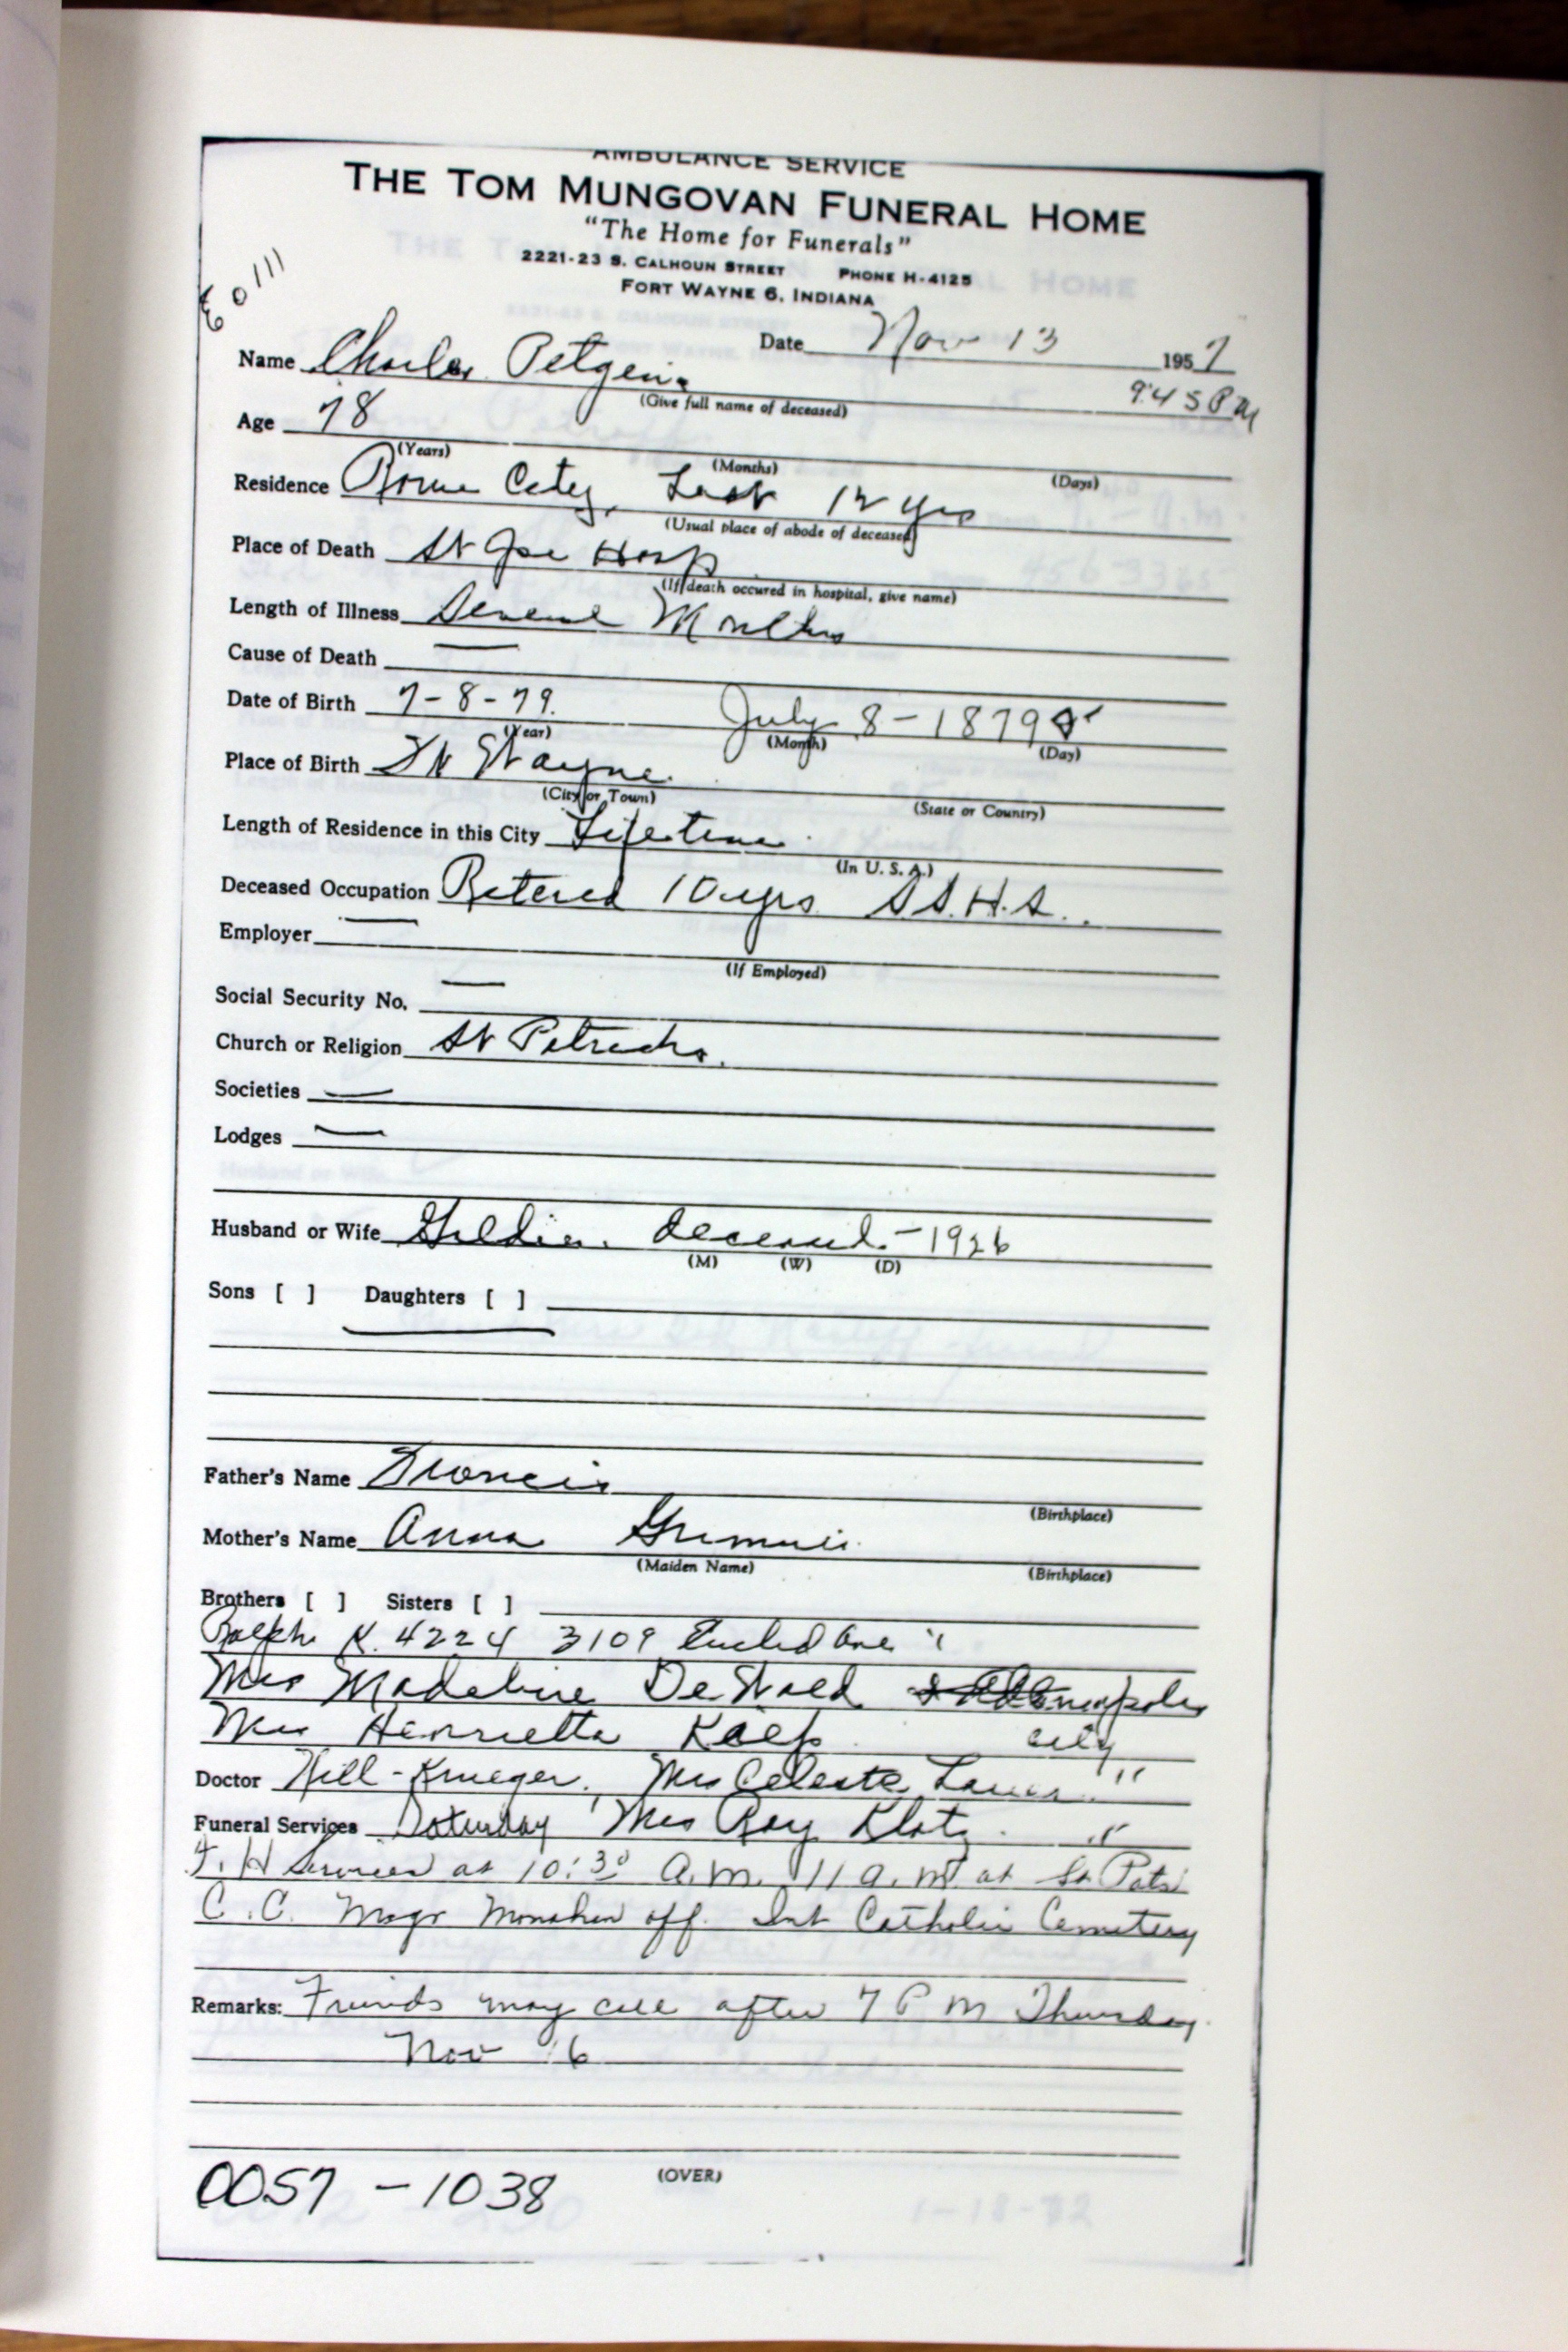 AMBULANCE SERVICE
THE TOM MUNGOVAN FUNERAL HOME
"The Home for Funerals"
2221-23 S. CALHOUN STREET PHONE H-4125
FORT WAYNE 6, INDIANA
Date Nov 13 1957
Name Charles Petgen
9:45 PM
(Give full name of deceased)
Age 78
(Years) (Months) (Days)
Residence Rome City, Last 12 yrs
(Usual place of abode of deceased)
Place of Death St Joe Hosp
(If death occured in hospital, give name)
Length of Illness Several Months
Cause of Death —
Date of Birth 7-8-79. July 8-1879
(Year) (Month) (Day)
Place of Birth Ft Wayne.
(City or Town) (State or Country)
Length of Residence in this City Lifetime
(In U. S. A.)
Deceased Occupation Retered 10 yrs S.S.H.S.
Employer —
(If Employed)
Social Security No. —
Church or Religion St Patricks.
Societies —
Lodges —
Husband or Wife Goldie. deceased.-1926
(M) (W) (D)
Sons [ ] Daughters [ ]
Father's Name Francis
(Birthplace)
Mother's Name Anna
(Maiden Name) (Birthplace)
Brothers [ ] Sisters [ ]
Ralph K. 4224 3109 Euclid Ave "
Mrs Madeline DeWald
Mrs Henrietta Kaep City
Doctor Hill-Krueger. Mrs Celeste Lauer "
Funeral Services Saturday Mrs Roy Klotz. "
F. H Services at 10:30 A.M. 11 a.m. at St Pats
C. C. Msgr Monahan off. Int Catholic Cemetery
Remarks: Friends may call after 7 P M Thursday
Nov 16
(OVER)
0057 - 1038